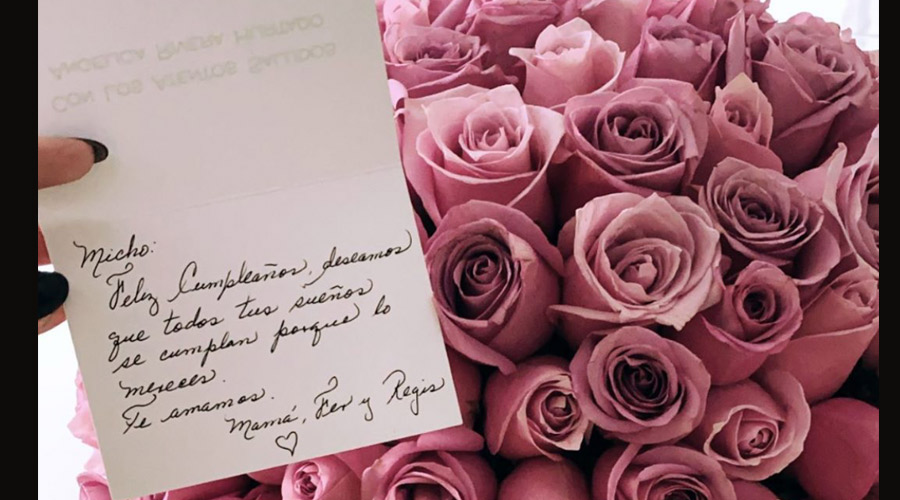 Con Los Atentos Saludos
Angelica Rivera Hurtado
Micho:
Feliz Cumpleaños, deseamos
que todos tus sueños
se cumplan porque lo
mereces.
Te amamos.
Mamá, Fer y Regis